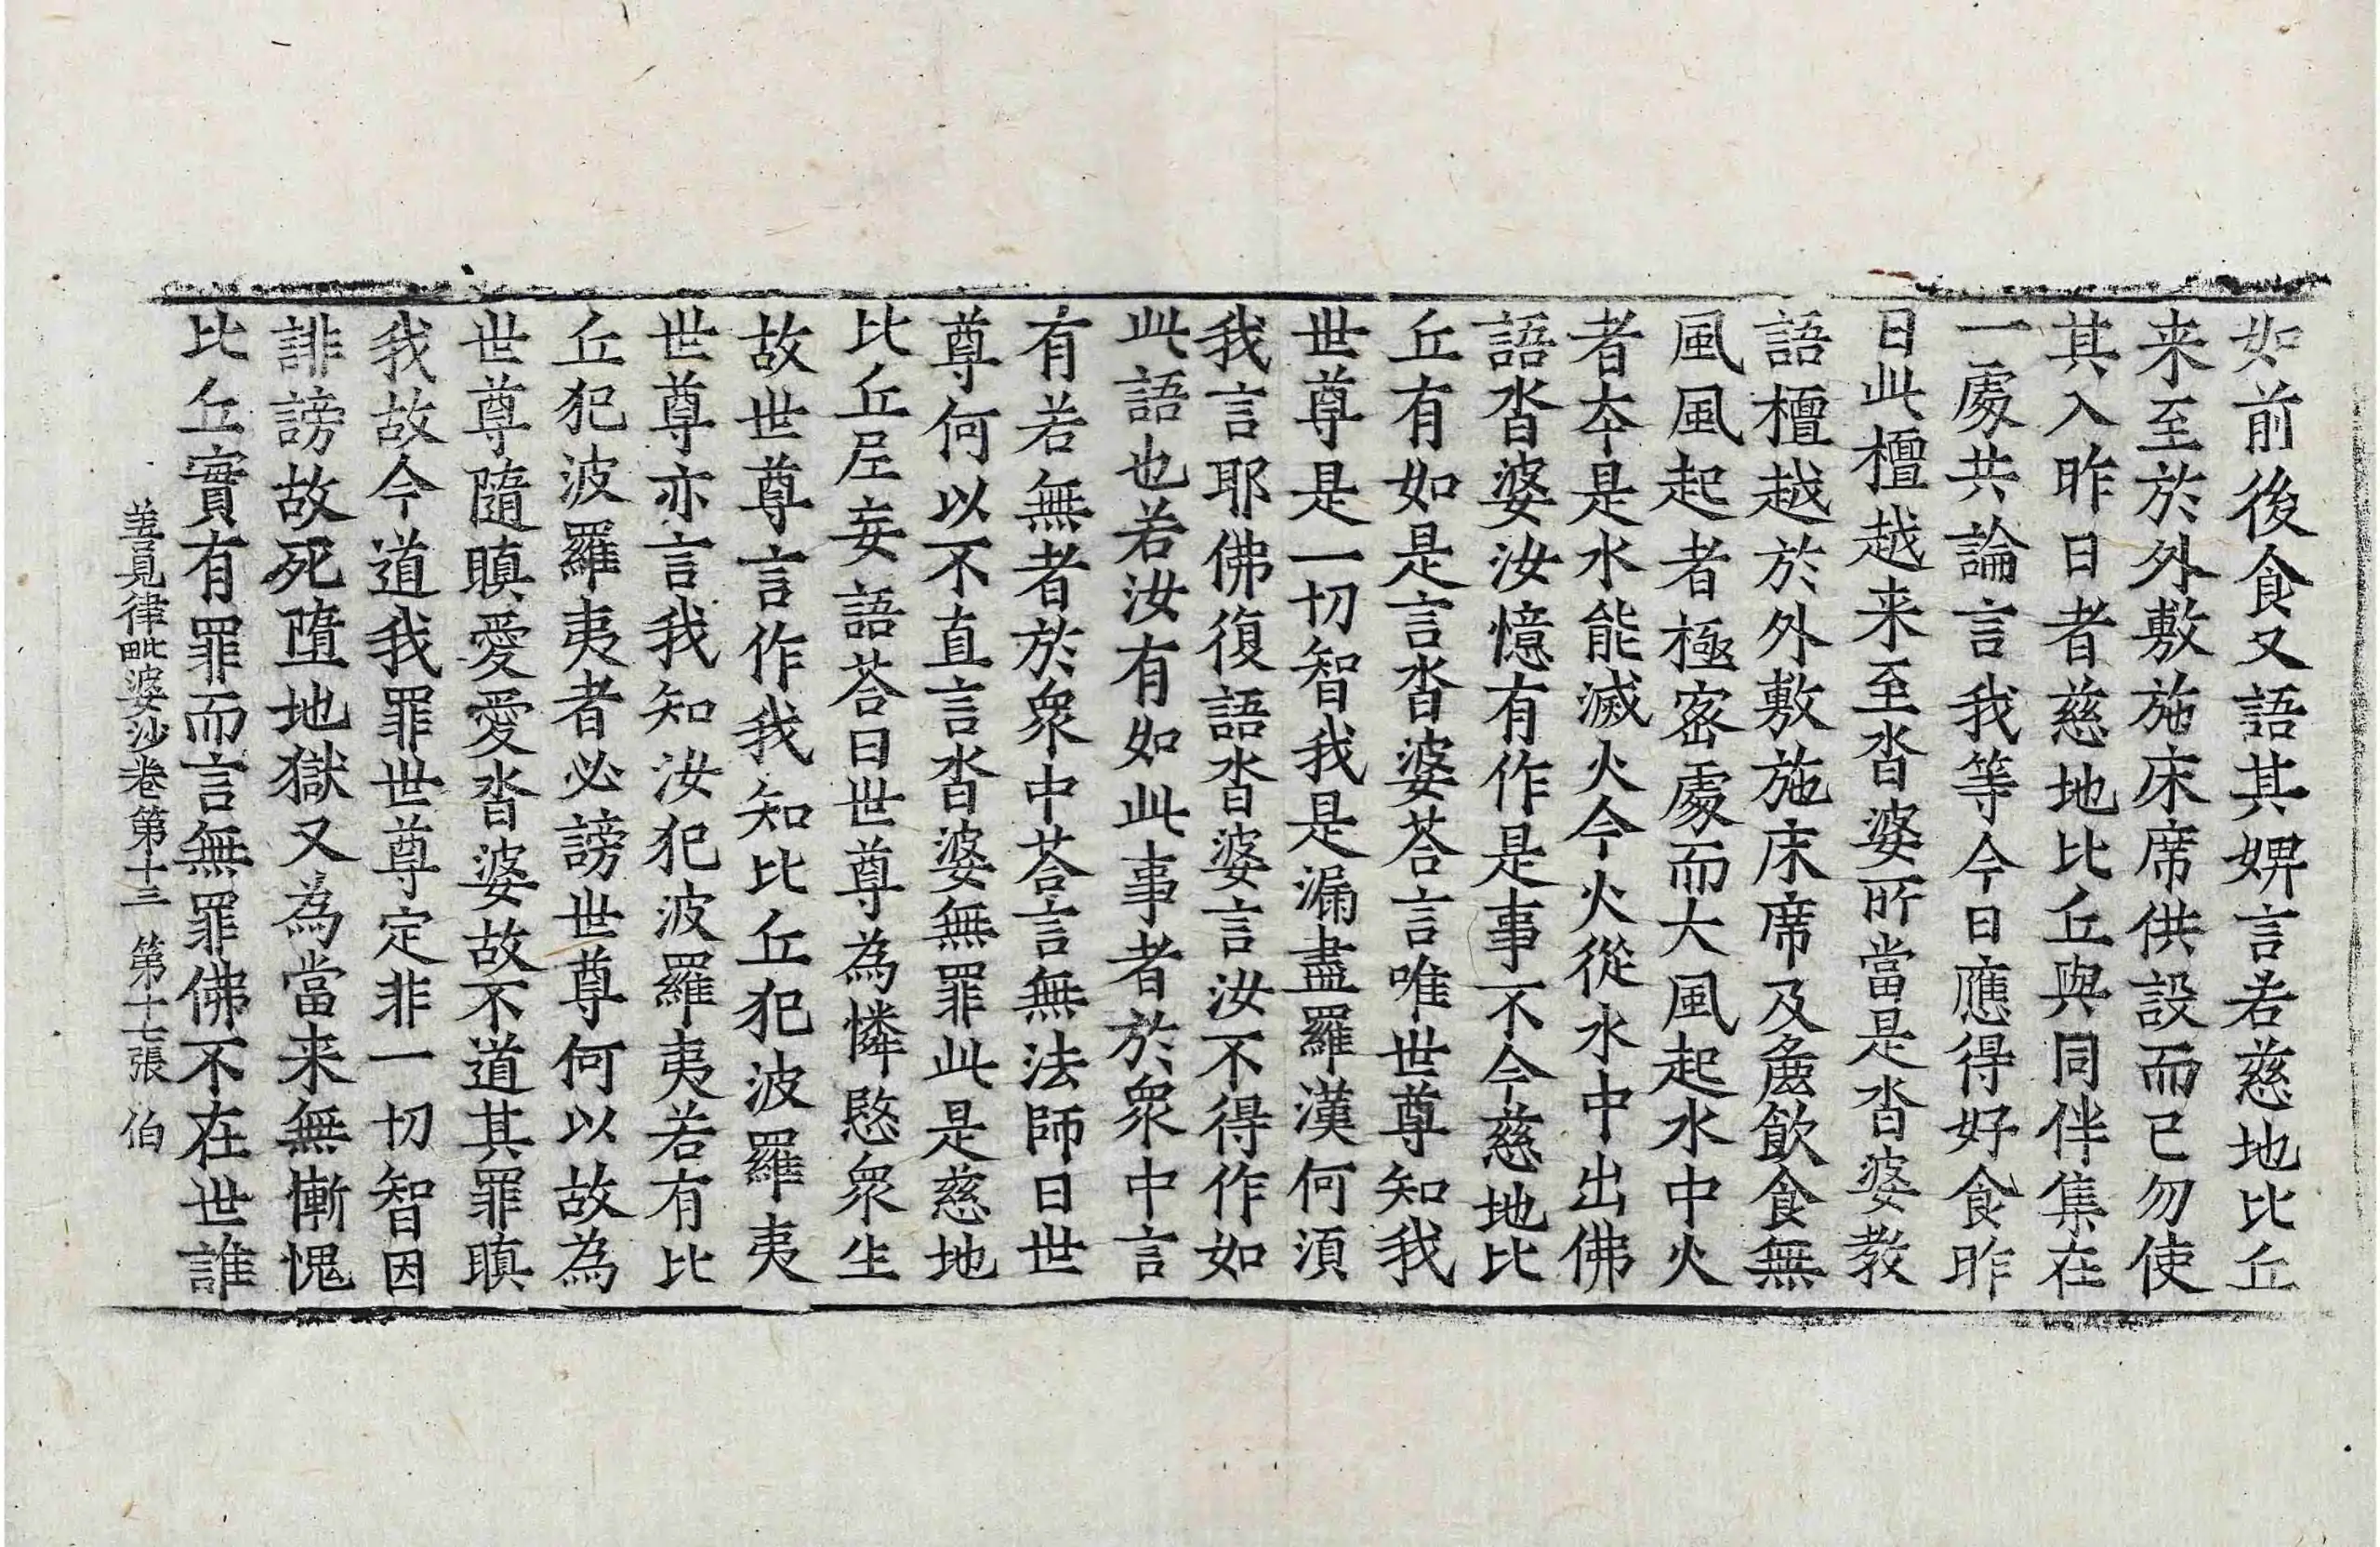 如前後食又語其婢言若慈地比丘
来至於外敷施床席供設而已勿使
其入昨日者慈地比丘與同伴集在
一處共論言我等今日應得好食昨
日此檀越来至沓婆所當是沓婆教
語檀越於外敷施床席及麁飲食無
風風起者極宻處而大風起水中火
者夲是水能滅火今火從水中出佛
語沓婆汝憶有作是事不今慈地比
丘有如是言沓婆荅言唯世尊知我
世尊是一切智我是漏盡羅漢何湏
我言耶佛復語沓婆言汝不得作如
此語也若汝有如此事者於衆中言
有若無者於衆中荅言無法師曰世
尊何以不直言沓婆無罪此是慈地
比丘𡰱妄語荅曰世尊為憐愍衆生
故世尊言作我知比丘犯波羅夷
世尊亦言我知汝犯波羅夷若有比
丘犯波羅夷者必謗世尊何以故為
世尊隨瞋愛愛沓婆故不道其罪瞋
我故今道我罪世尊定非一切智因
誹謗故死墮地獄又為當来無慚愧
比丘實有罪而言無罪佛不在世誰
善見律毗婆沙卷第十三 第十七張 伯